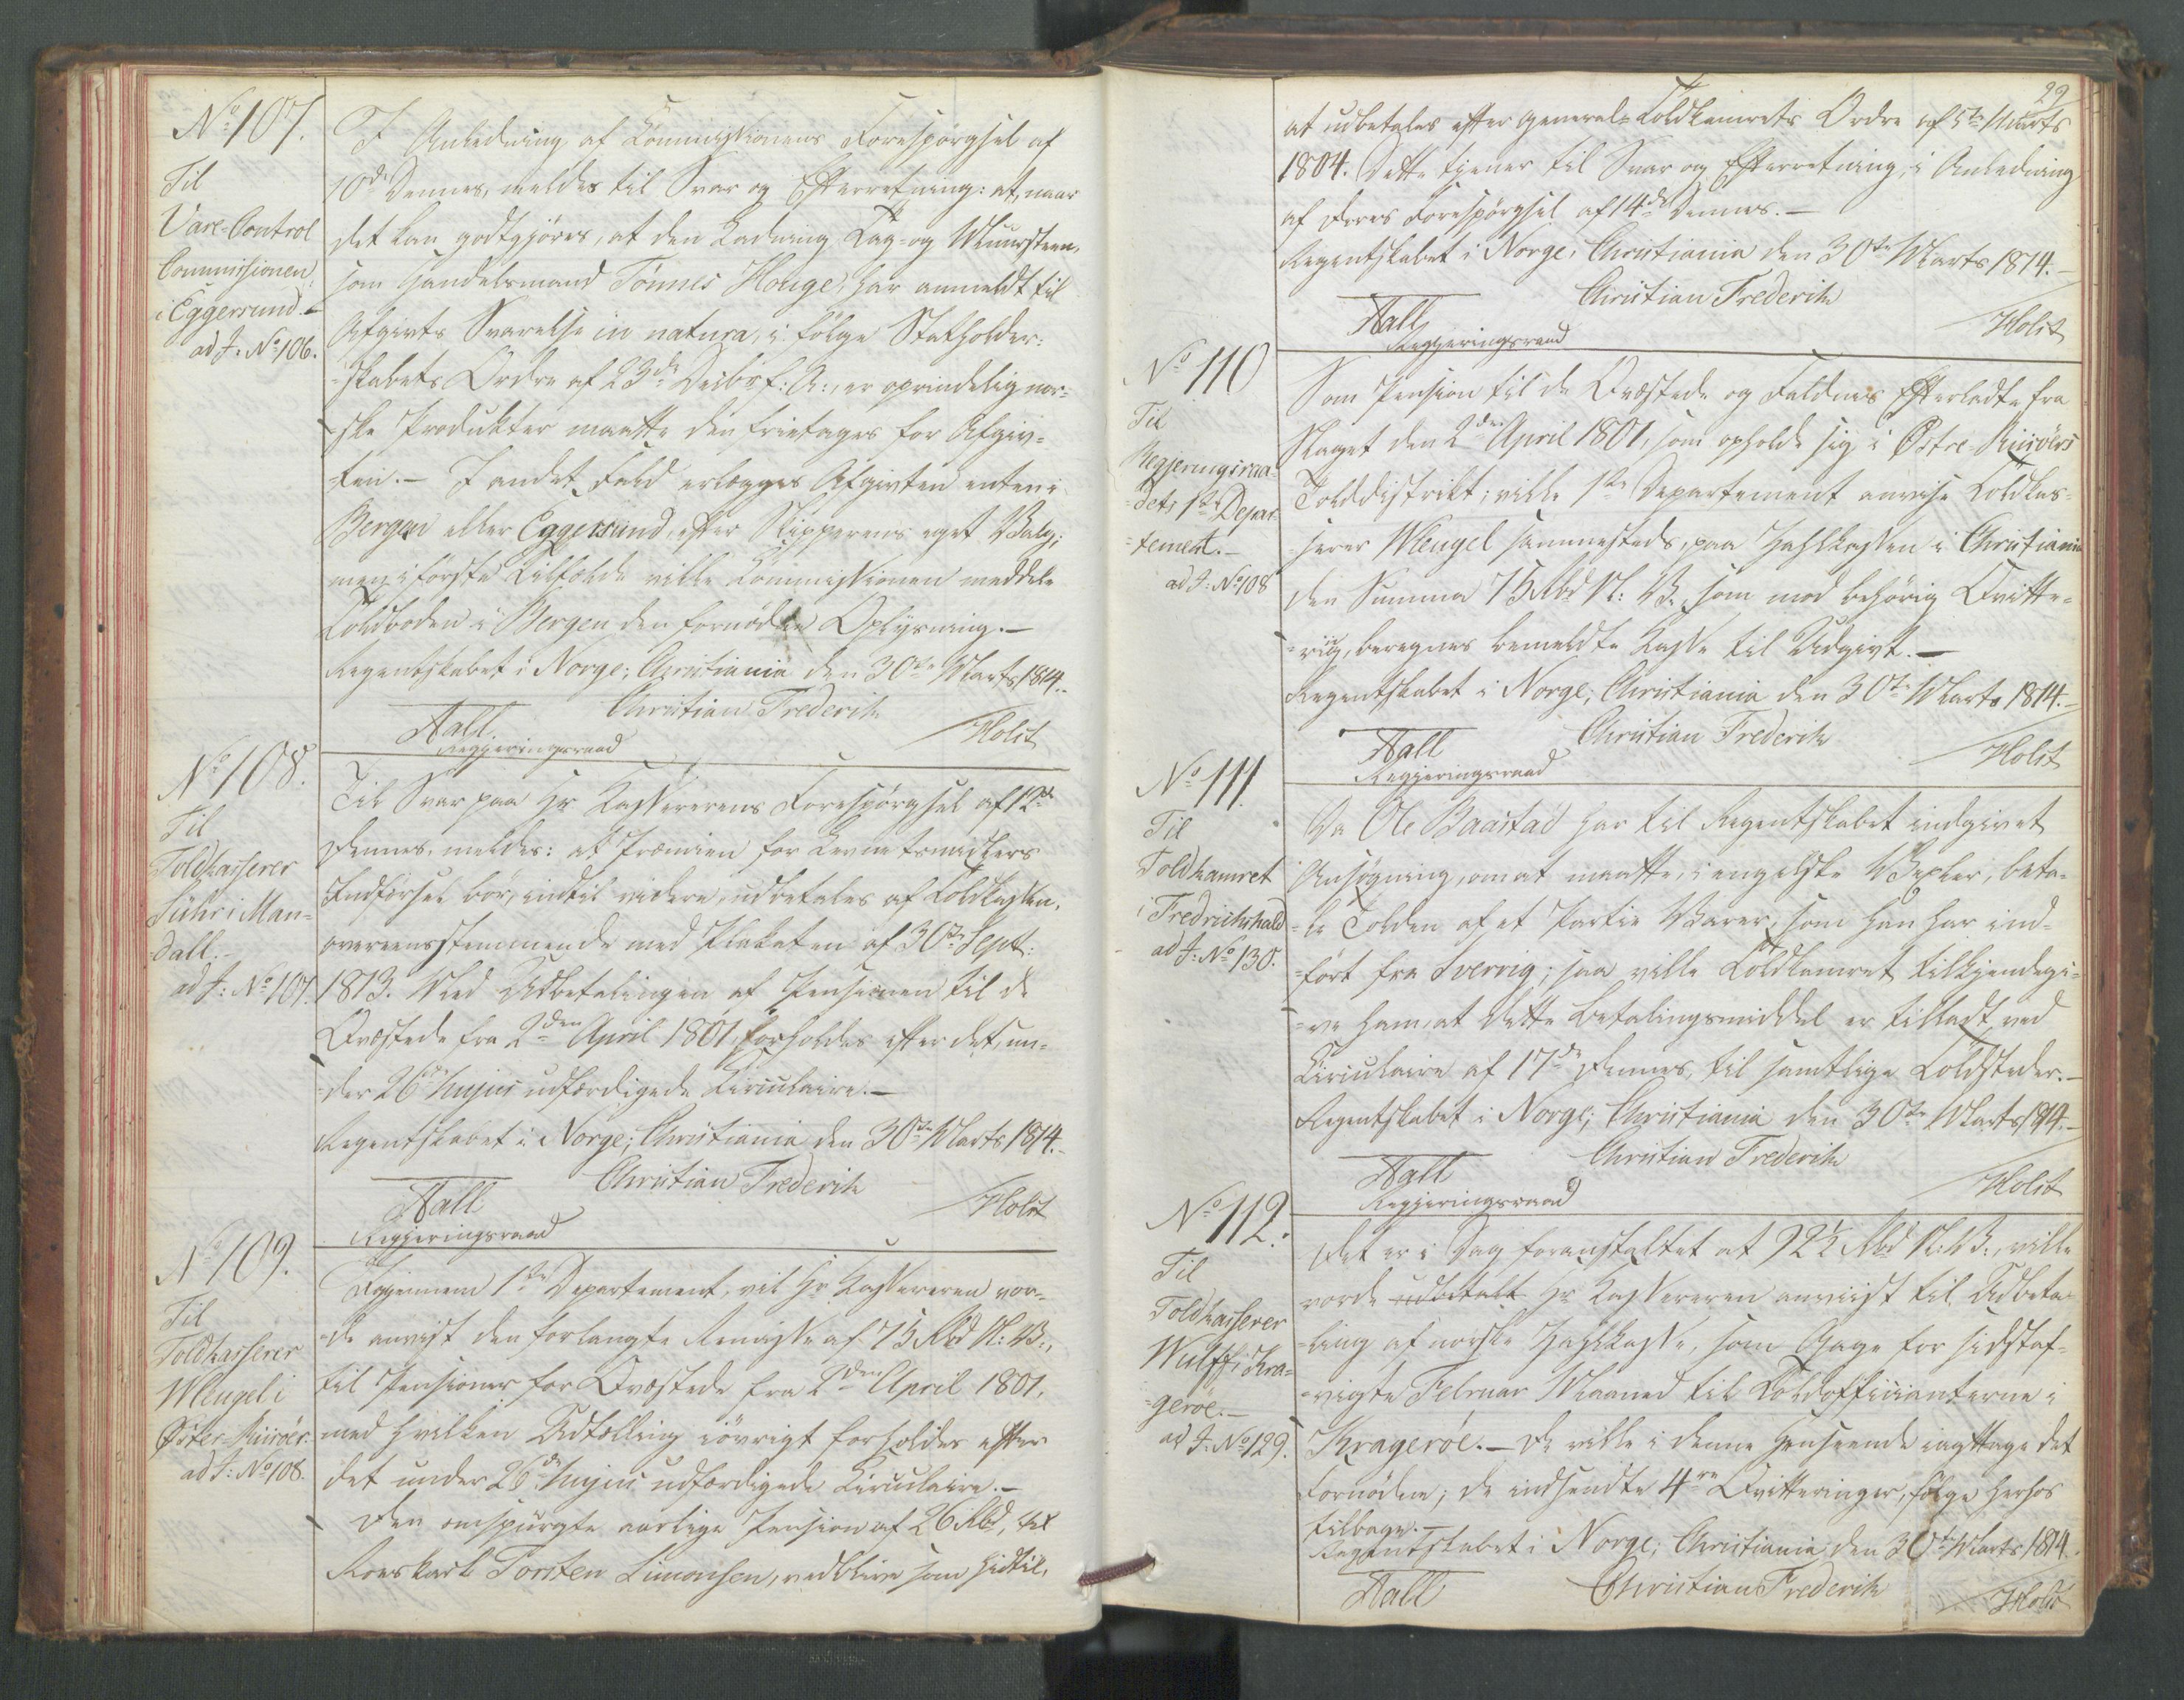 No 107.
Til
Vare-Control
Commissionen
i Eggersund.-
ad J: No 106.
I Anledning af Commissionens Forespörgsel af
10de Dennes, meldes til Svar og Efterretning: at, naar
det kan godtgjöres, at den Ladning Tag- og Muursteen,
som Handelsmand Tönnes Houge, har anmeldt til
Afgivts Svarelse in natura, i fölge Statholder-
-skabets Ordre af 23de Decbr f: A:, er oprindelig nor-
-ske Produkter maatte den fritages for Afgiv-
-ten.- I andet Fald erlægges Afgivten enten i
Bergen eller Eggersund, efter Skipperens eget Valg;
men i förste Tilfælde ville Commissionen meddele
Toldboden i Bergen den fornödne Oplysning.-
Regentskabet i Norge; Christiania den 30te Marts 1814.-
Christian Frederik
Aall
Regjeringsraad
Holst
No 108.
Til
Toldkasserer
Lühr i Man-
dall.-
ad J: No 107.
Til Svar paa Hr Kassererens Forespörgsel af 12te
Dennes, meldes: at Præmien for Levnetsmidlers
Indförsel bör, indtil videre, udbetales af Toldkassen,
overeensstemmende med Plakaten af 30te Septr:
1813. Med Udbetalingen af Pensionen til de
Qvæstede fra 2den April 1801, forholdes efter det, un-
-der 26de hujus udfærdigede Circulaire.-
Regentskabet i Norge; Christiania den 30te Marts 1814.-
Christian Frederik
Aall
Regjeringsraad
Holst
No 109.
Til
Toldkasserer
Wleugel i
Öster-Riisöer.
ad J: No 108.
Igjennem 1ste Departement, vil Hr Kassereren vor-
-de anvist den forlangte Remisse af 75 Rbd N: V:,
til Pensioner for Qvæstede fra 2den April 1801,
med hvilken Udtælling iövrigt forholdes efter
det under 26de hujus udfærdigede Circulaire.-
Den omspurgte aarlige Pension af 26 Rbd, til
Roerskarl Torsten Simonsen, vedblive som hidtil,
29
at udbetales efter General-Toldkamrets Ordre af 5te Marts
1804. Dette tjener til Svar og Efterretning, i Anledning
af Deres Forespörgsel af 14de Dennes.-
Regentskabet i Norge, Christiania den 30te Marts 1814.-
Christian Frederik
Aall
Regjeringsraad
Holst
No 110
Til
Regjeringsraa-
-dets 1ste Depar-
-tement.-
ad J: No 108
Som Pension til de Qvæstede og Faldnes Efterladte fra
Slaget den 2den April 1801, som opholde sig i Östre-Riisöers
Tolddistrikt; ville 1ste Departement anvise Toldkas-
-serer Wleugel sammesteds, paa Zahlkassen i Christiania
den Summa 75 Rbd N: V., som mod behörig Qvitte-
-ring, beregnes bemeldte Kasse til Udgivt.-
Regentskabet i Norge; Christiania den 30te Marts 1814.-
Christian Frederik
Aall
Regjeringsraad
Holst
No 111.
Til
Toldkamret
i Fredrichshald
ad J: No 130.
Da Ole Baastad har til Regentskabet indgivet
Ansögning, om at maatte, i engelske Vexler, beta-
-le Tolden af et Partie Varer, som han har ind-
-fört fra Sverrig; saa ville Toldkamret tilkjendegi-
-ve ham, at dette Betalingsmiddel er tilladt ved
Circulaire af 17de Dennes, til samtlige Toldsteder.-
Regentskabet i Norge; Christiania den 30te Marts 1814.-
Christian Frederik
Aall
Regjeringsraad
Holst
No 112.
Til
Toldkasserer
Wulff i Kra-
-geröe.-
ad J: No 129.
Det er i Dag foranstaltet at 92½ Rbd N: V:, ville
vorde udbetalt Hr Kassereren anviist til Udbeta-
-ling af norske Zahlkasse, som Gage for sidstaf-
-vigte Februar Maaned til Toldofficianterne i
Krageröe.- De ville i denne Henseende iagttage det
Fornödne; de indsendte 4re Qvitteringer, fölge herhos
tilbage.-
Regentskabet i Norge; Christiania den 30te Marts 1814.
Christian Frederik
Aall
Holst